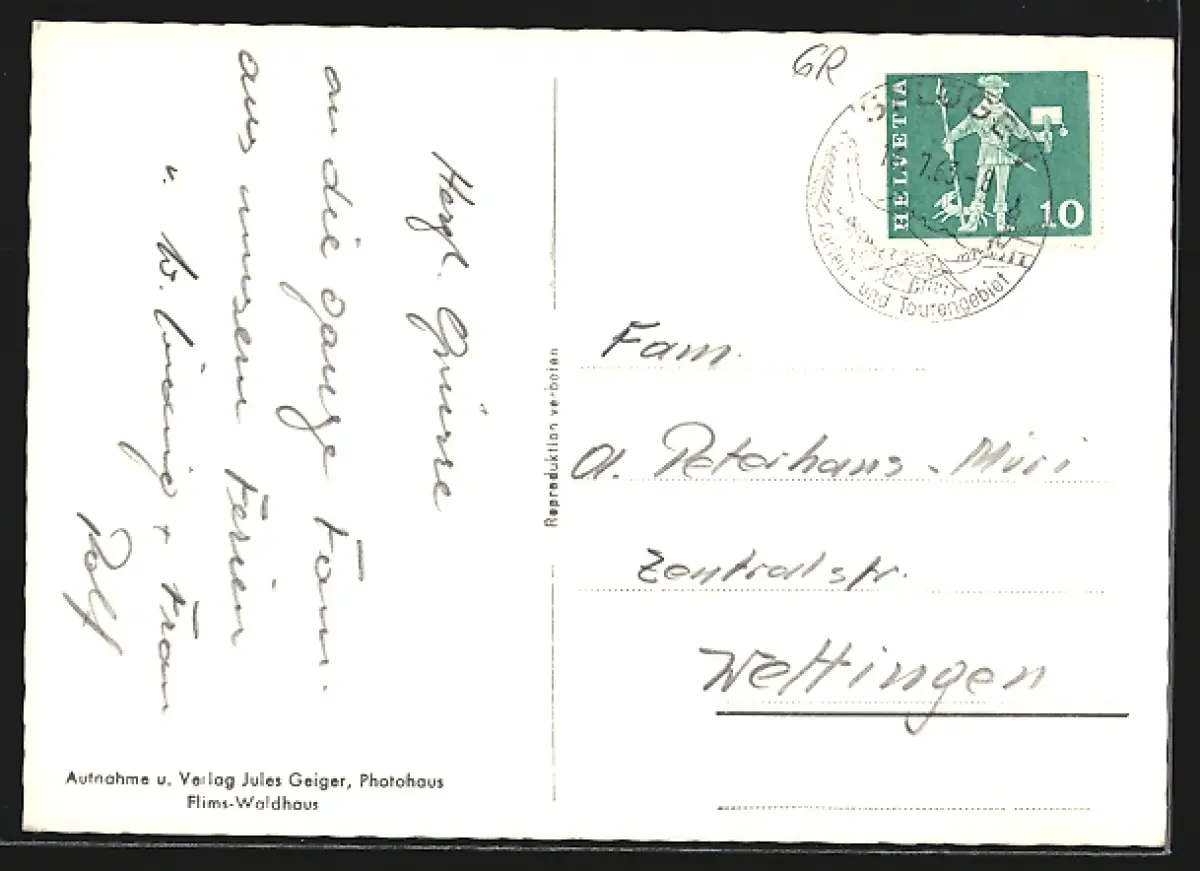 Herzl. Grüsse
an die ganze Fam.
aus unseren Ferien
u. W. + Frau
Rolf
Aufnahme u. Verlag Jules Geiger, Photohaus
Flims-Waldhaus
Reproduktion verboten
GR
SPLÜGEN
7.63-
Ferien- und Tourengebiet
HELVETIA
10
Fam.
A. Peterhans - Müri
Zentralstr.
Wettingen